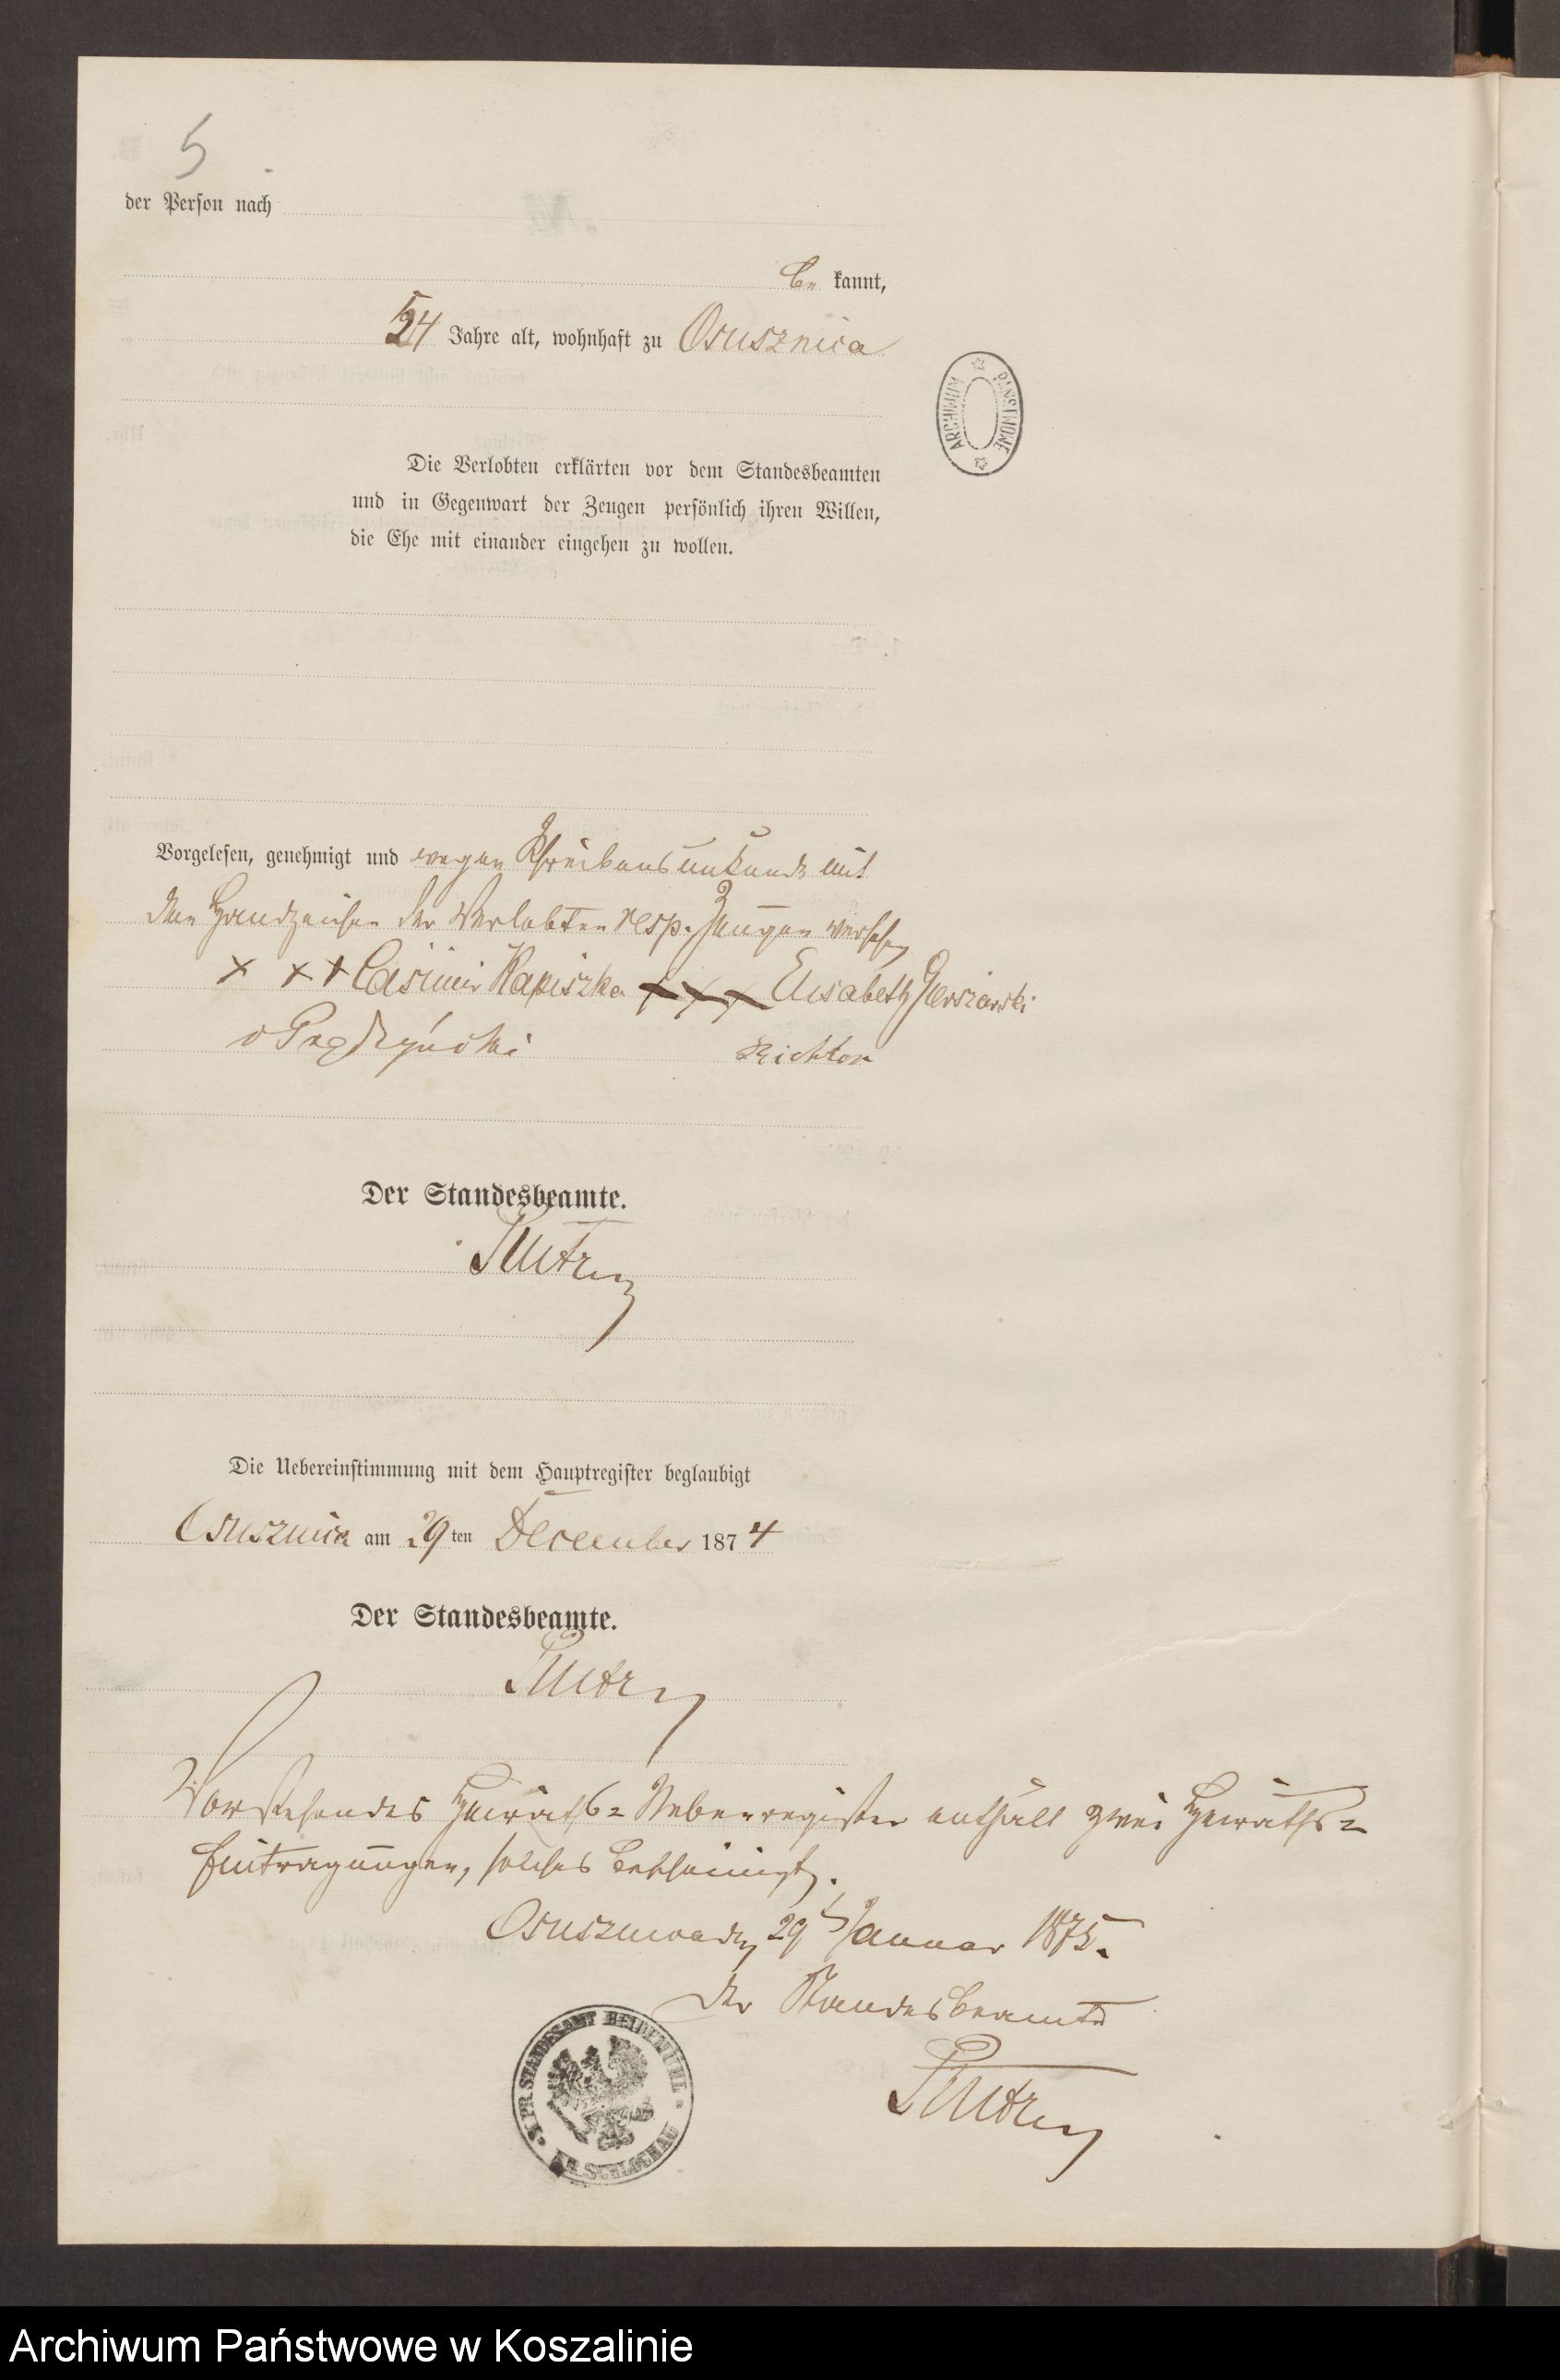 5
der Person nach
be kannt,
54 Jahre alt, wohnhaft zu Osusznica
ARCHIWUM PAŃSTWOWE
Die Verlobten erklärten vor dem Standesbeamten
und in Gegenwart der Zeugen persönlich ihren Willen,
die Ehe mit einander eingehen zu wollen.
Vorgelesen, genehmigt und wegen Schreibensunkunde mit
den Handzeichen der Verlobten resp. Zeugen versehen
x x x Casimir Kapiszka x x x Elisabeth
Richter
Der Standesbeamte.
Die Uebereinstimmung mit dem Hauptregister beglaubigt
Osusznica am 29ten December 1874
Der Standesbeamte.
Vorstehendes Heiraths= Nebenregister enthält zwei Heiraths=
Eintragungen, solches bescheinigt.
Osusznica den 29 Januar 1875.
Der Standesbeamte
K. PR. STANDESAMT HEIDEMÜHL
KR. SCHLOCHAU
Archiwum Państwowe w Koszalinie